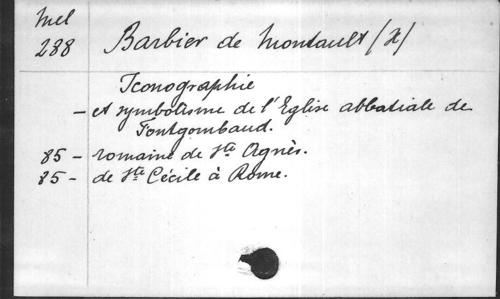 Mel
288 Barbier de Montault (X)
Iconographie
- et symbolisme de l'Eglise abbatiale de
Fontgombaud.
85 - romaine de Ste Agnès.
85 - de Ste Cécile à Rome.